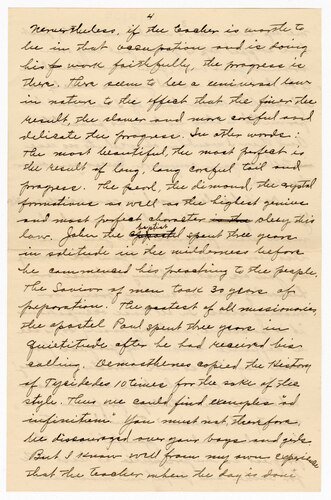 4
Nevertheless, if the teacher is worth to
be in that occupation and is doing
his work faithfully, the progress is
there. There seem to be a universal law
in nature to the effect that the finer the
result, the slower and more careful and
delicate the progress. In other words:
The most beautiful, the most perfect is
the result of long, long careful toil and
progress. The pearl, the dimond, the crystal
formations as well as the highest genius
and most perfect character obey this
law. John the Baptist spent three years
in solitude in the wilderness before
he commensed his preaching to the people.
The Savior of men took 30 years of
peporation. The gratest of all missionaries,
the apostel Paul spent three years in
quietitude after he had receired his
calling. Demosthenes copied the History
of 10 times for the sake of the
style. Thus one could find exemples "ad
infinitum" You must not, therefore,
be discouraged over your boys and girls.
But I know well from my own experience
that the teacher when the day is done